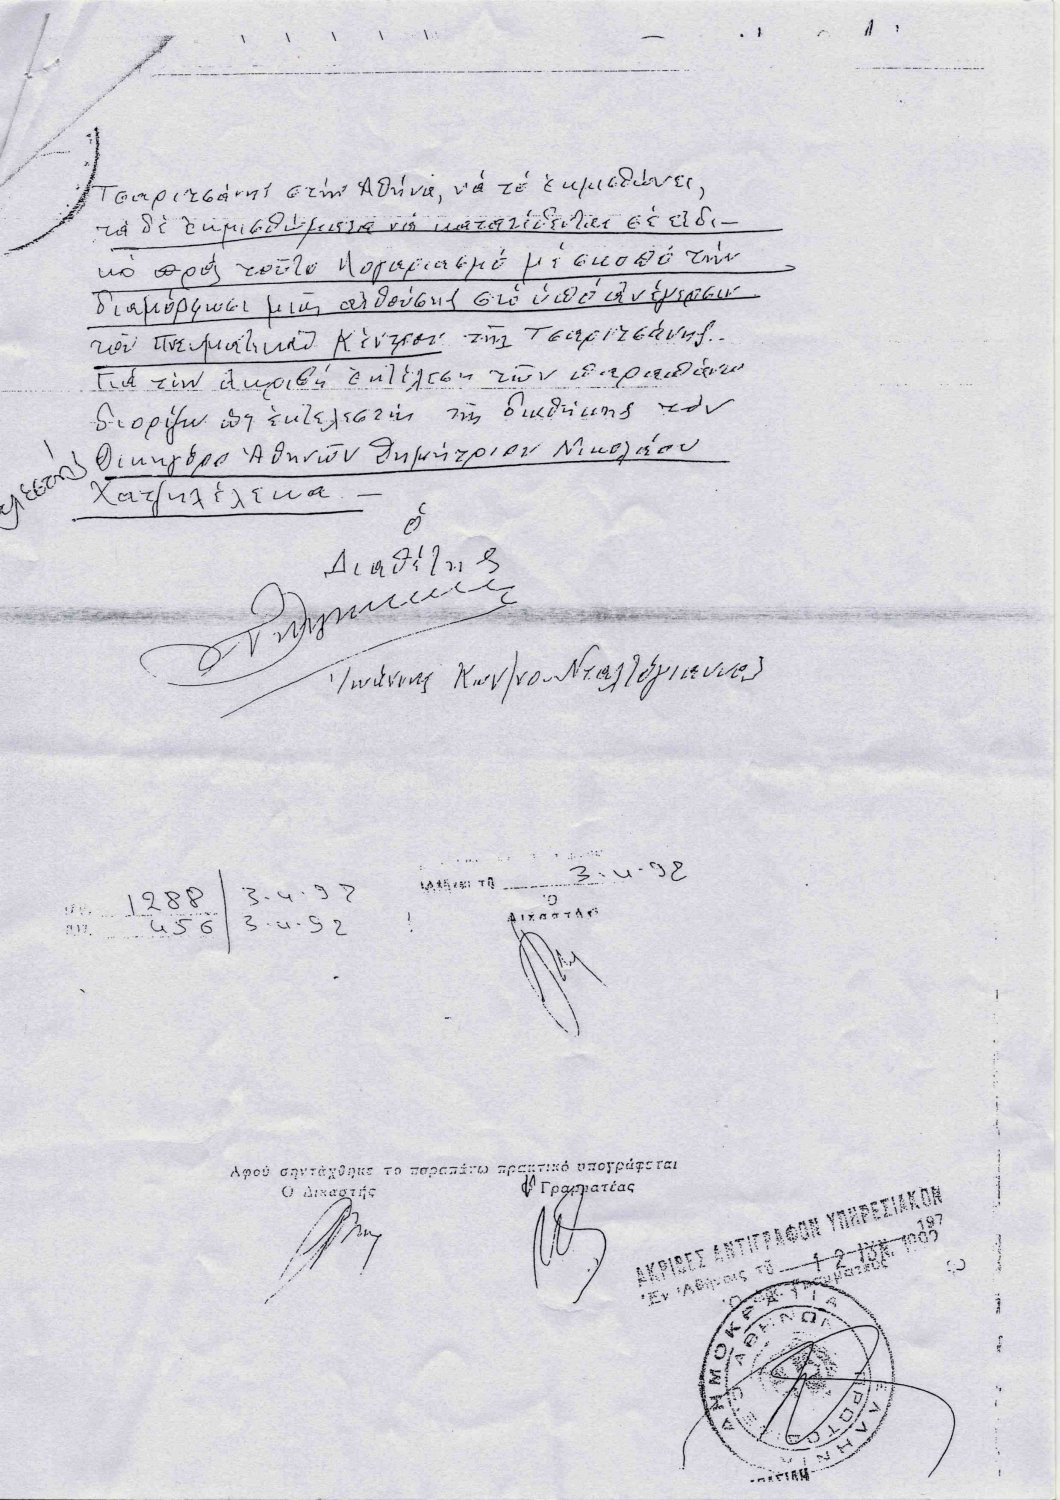 Τσαριτσάνης στήν Ἀθήνα, νά τό ἐκμισθώνει,
τά δέ ἐκμισθώματα νά κατατίθενται σέ εἰδι-
κό πρός τοῦτο λογαριασμό μέ σκοπό τήν
διαμόρφωσι μιᾶς αἰθούσης στό ὑπό ἀνέγερσιν
τοῦ Πνευματικοῦ Κέντρου τῆς Τσαριτσάνης.
Γιά τήν ἀκριβῆ ἐκτέλεση τῶν παραπάνω
διορίζω ὡς ἐκτελεστήν τῆς διαθήκης τόν
Δικηγόρο Ἀθηνῶν Δημήτριον Νικολάου
Χατζηλέλεκα. —
ὁ
Διαθέτης
Ἰωάννης Κων/νου Νταλτόγιαννος
1288 / 3-4-92
456 / 3-4-92
3-4-92
Ο
Δικαστής
Αφού συντάχθηκε το παραπάνω πρακτικό υπογράφεται
Ο Δικαστής
Ο Γραμματέας
ΑΚΡΙΒΕΣ ΑΝΤΙΓΡΑΦΟΝ ΥΠΗΡΕΣΙΑΚΟΝ
Ἐν Ἀθήναις τῇ 12 ΙΟΥΝ. 197
Ὁ Γραμματεύς
ΕΛΛΗΝΙΚΗ ΔΗΜΟΚΡΑΤΙΑ
ΑΘΗΝΩΝ